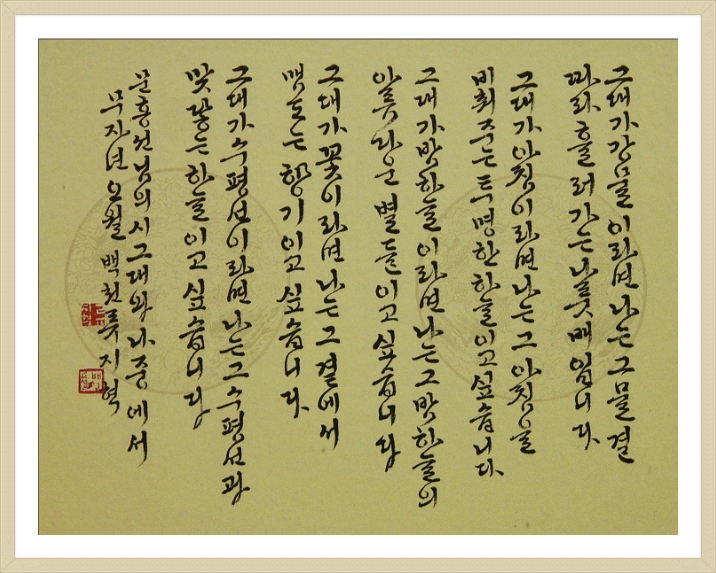 그대가 강물이라면 나는 그 물결
따라 흘러가는 나룻배입니다.
그대가 아침이라면 나는 그 아침을
비춰주는 투명한 하늘이고 싶습니다.
그대가 밤하늘이라면 나는 그 밤하늘의
아름다운 별들이고 싶습니다
그대가 꽃이라면 나는 그 곁에서
맴도는 향기이고 싶습니다.
그대가 수평선이라면 나는 그 수평선과
맞닿는 하늘이고 싶습니다
문홍선님의 시 그대와 나 중에서
무자년 오월 백천 류지혁